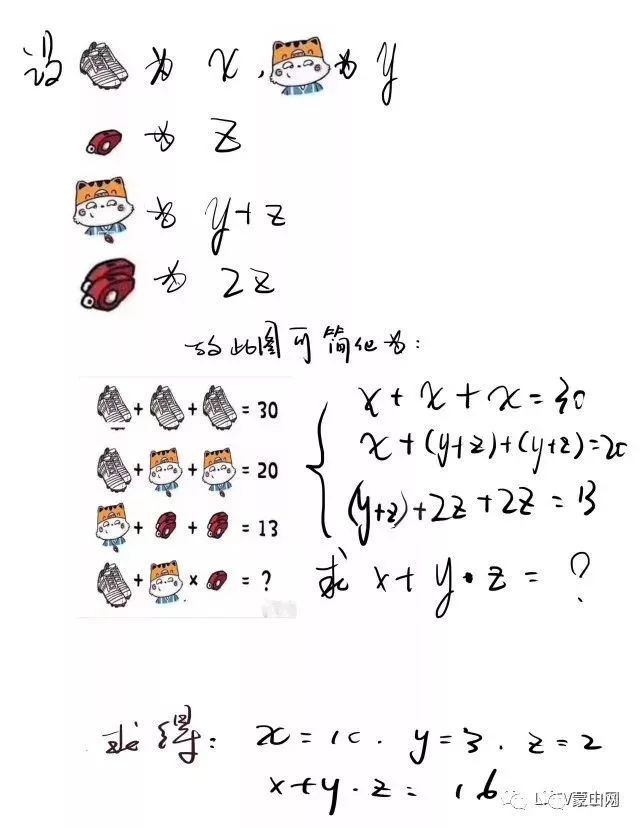 设 为 x, 为 y
为 z
为 y+z
为 2z
故此图可简化为:
+ + = 30
+ + = 20
+ + = 13
+ × = ?
x+x+x=30
x+(y+z)+(y+z)=20
(y+z)+2z+2z=13
求 x+y·z=?
求得: x=10. y=3. z=2
x+y·z=16